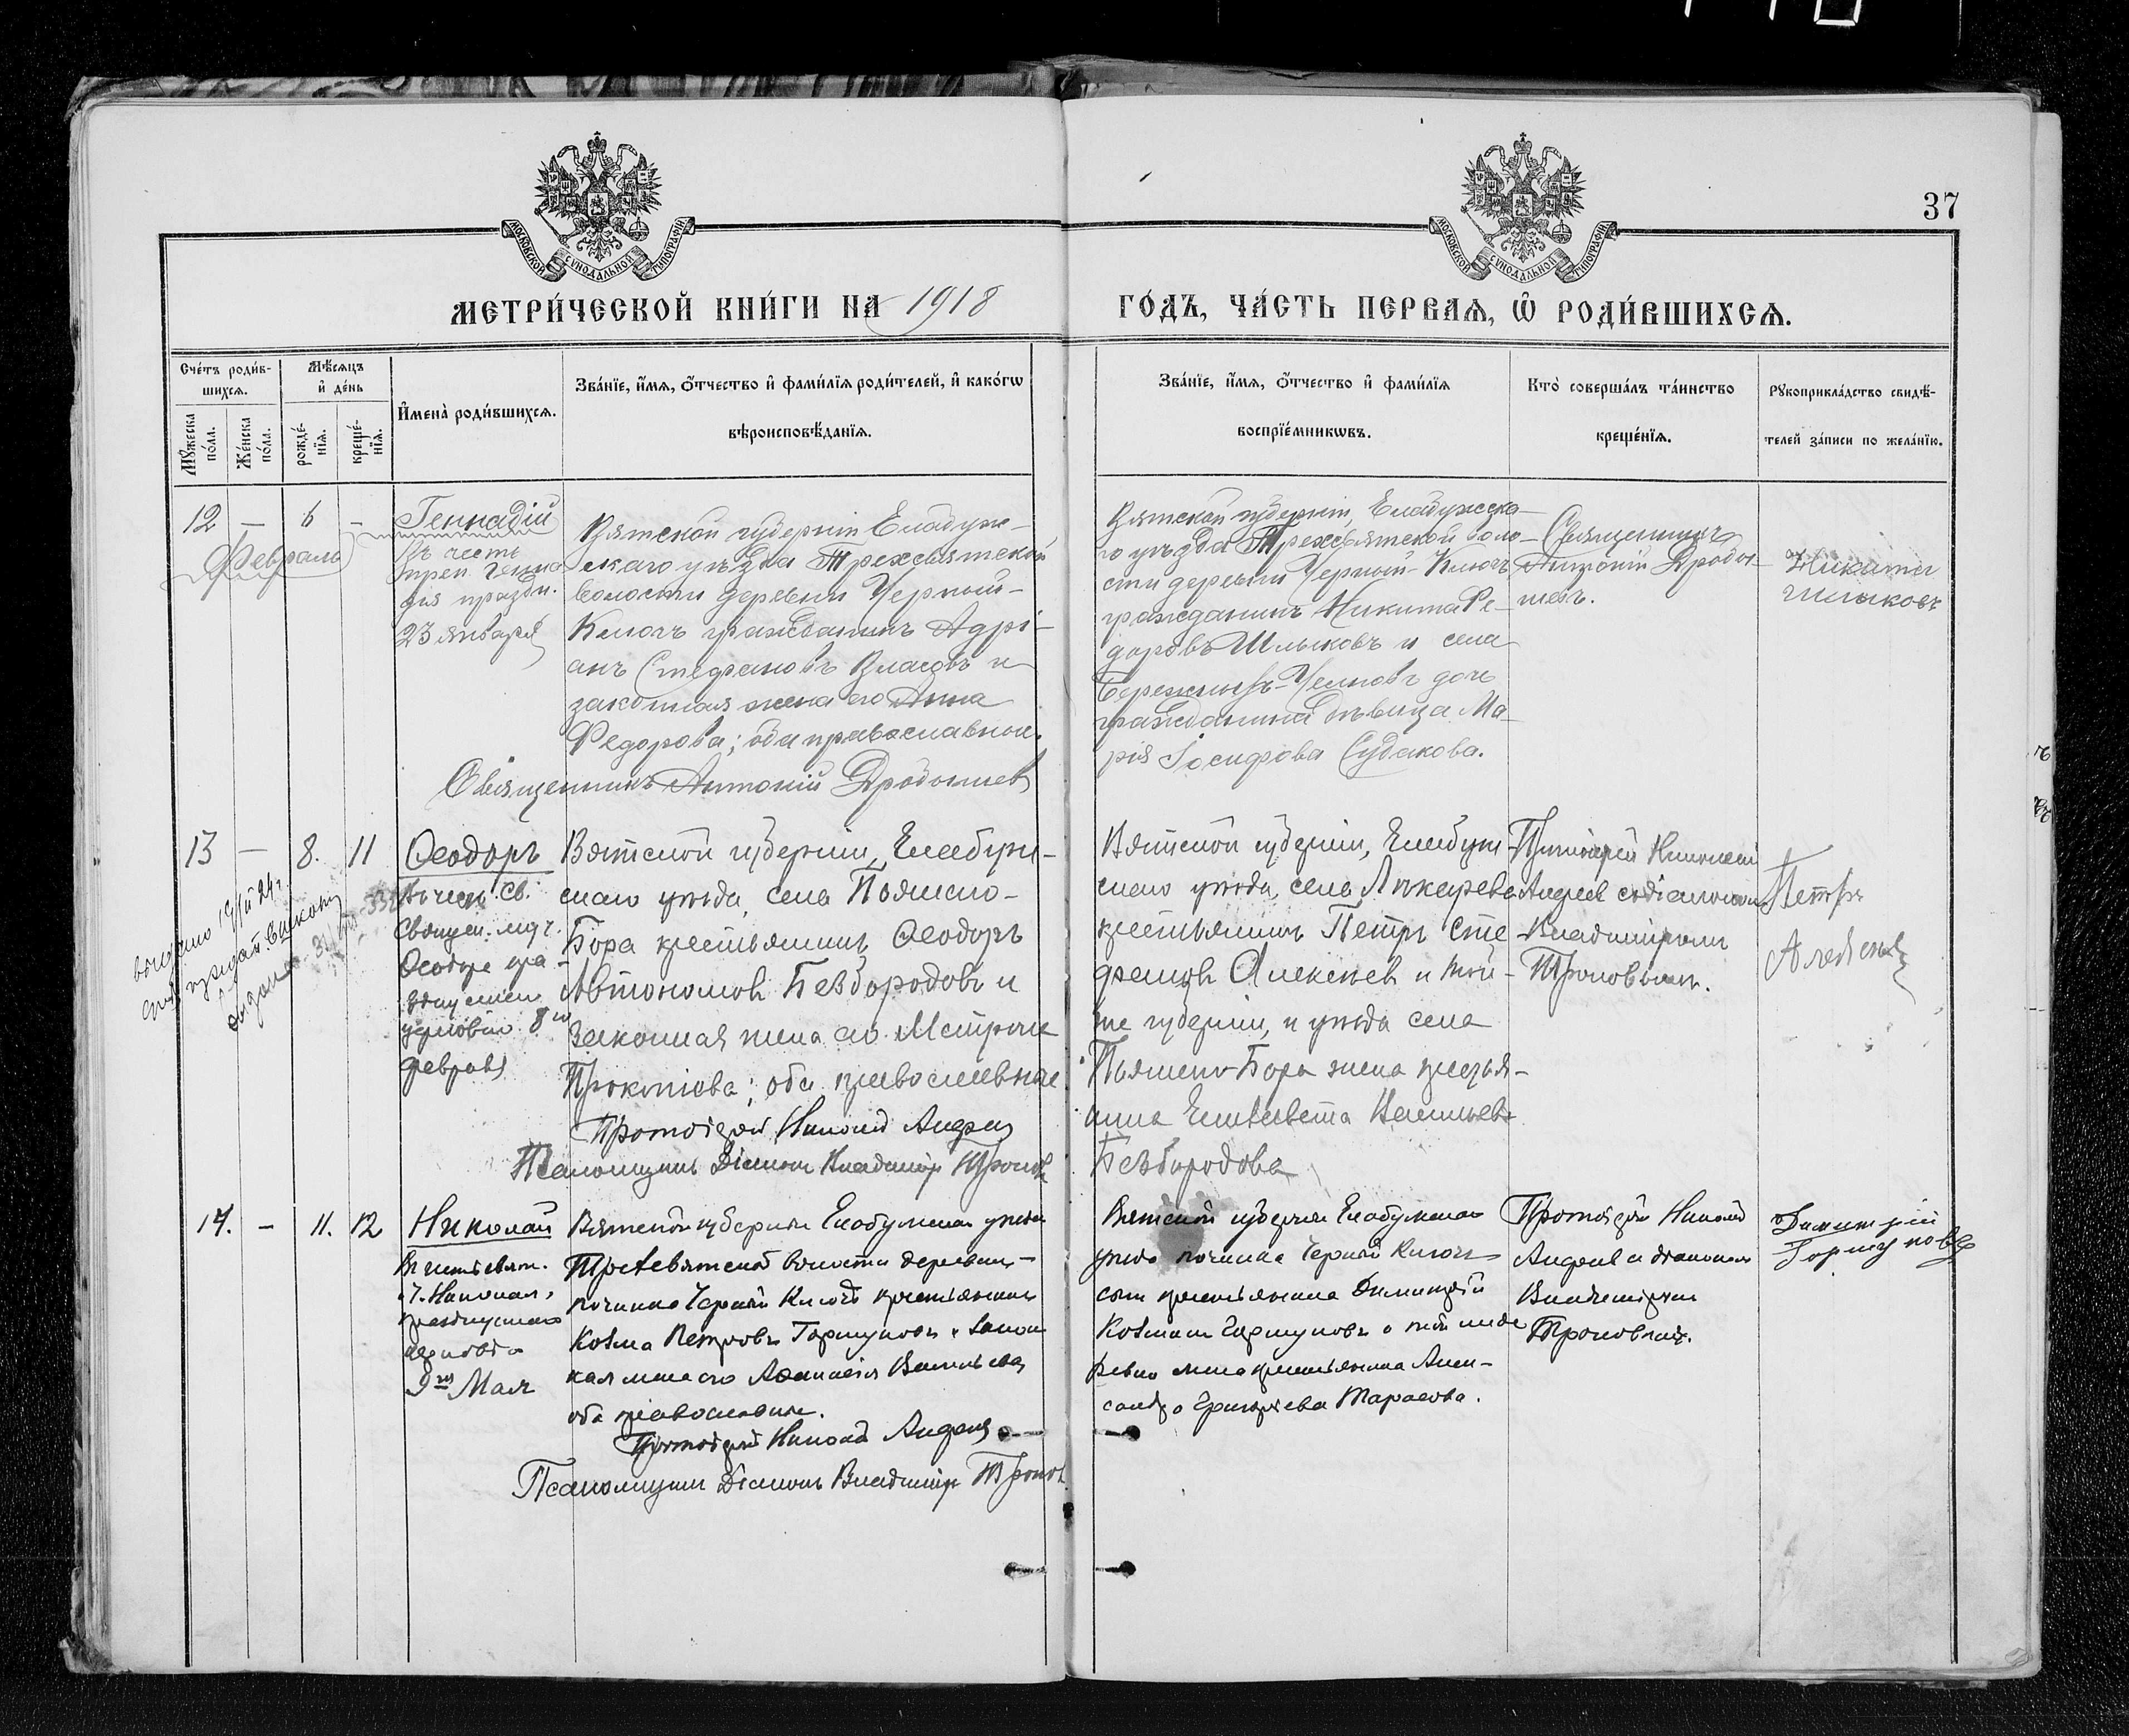 37
МОСКОВСКОЙ СѴНОДАЛЬНОЙ ТИПОГРАФІИ
МОСКОВСКОЙ СѴНОДАЛЬНОЙ ТИПОГРАФІИ
МЕТРИ́ЧЕСКОЙ КНИ́ГИ НА 1918
ГО́ДЪ, ЧА́СТЬ ПЕРВАѦ, Ѽ РОДИ́ВШИХСѦ.
Сче́тъ роди́в-
шихсѧ.
Мꙋ́жеска по́ла.
Же́нска по́ла.
Мѣ́сѧцъ
и҆ де́нь
рожде́-
нїѧ.
креще́-
нїѧ.
И҆мена̀ роди́вшихсѧ.
Зва́нїе, и҆́мѧ, ѻ҆́тчество и҆ фами́лїѧ роди́телей, и҆ како́гѡ
вѣроисповѣ́данїѧ.
Зва́нїе, и҆́мѧ, ѻ҆́тчество и҆ фами́лїѧ
воспрїе́мникѡвъ.
Кто̀ соверша́лъ та́инство
креще́нїѧ.
Рꙋкоприкла́дство свидѣ́-
телей за́писи по жела́нїю.
12 — 6 —
Февраль
Геннадій
Въ честь
преп. Генна
дія праздн.
23 января
Вятской губерніи Елабуж-
скаго уѣзда Трехсвятской
волости деревни Черный-
Ключъ гражданинъ Адрі-
анъ Стефановъ Власовъ и
законная жена его Анна
Федорова; оба православные.
Священникъ Антоній Дробышев
Вятской губерніи, Елабужска-
го уѣзда Трехсвятской воло-
сти деревни Черный-Ключъ
гражданинъ Никита Ѳе-
доровъ Шлыковъ и села
Бережныхъ-Челновъ дочь
гражданина дѣвица Ма-
рія Іосифова Судакова.
Священникъ
Антоній Дробы-
шевъ.
Никита
Шлыковъ
13 — 8. 11
Ѳеодоръ
Въ честь Св.
Священ. муч.
Ѳеодора пра-
зднуемаго
церковію 8го
февраля
Вятской губерніи, Елабуж-
скаго уѣзда, села Пьянаго-
Бора крестьянинъ Ѳеодоръ
Автономовъ Безбородовъ и
законная жена его Матрона
Прокопіева; оба православные
Протоіерей Николай Андреев
Псаломщикъ Діаконъ Владимір Троновъ
Вятской губерніи, Елабуж-
скаго уѣзда, села Лѣкарева
крестьянинъ Петръ Сте-
фановъ Алексѣевъ и той-
же губерніи, и уѣзда села
Пьянаго-Бора жена кресть-
янина Елизавета Васильева
Безбородова
Протоіерей Николай
Андреев съ діаконом
Владиміромъ
Троновымъ.
Петръ
Алексѣевъ
14. — 11. 12
Николай
Въ честь свят.
Николая,
празднуемаго
церковію
9го Мая
Вятской губерніи Елабужскаго уѣзда
Трехсвятской волости деревни-
починка Черный Ключъ крестьянинъ
Козма Петровъ Горшуновъ и закон-
ная жена его Аѳанасія Васильева,
оба православные.
Протоіерей Николай Андреев
Псаломщикъ Діаконъ Владимір Тронов
Вятской губерніи Елабужскаго
уѣзда починка Черный Ключъ
сынъ крестьянина Димитрій
Козминъ Горшуновъ и той же де-
ревни жена крестьянина Алек-
сандра Григорьева Тарасова.
Протоіерей Николай
Андреев и діаконъ
Владиміромъ
Троновымъ.
Димитрій
Горшуновъ